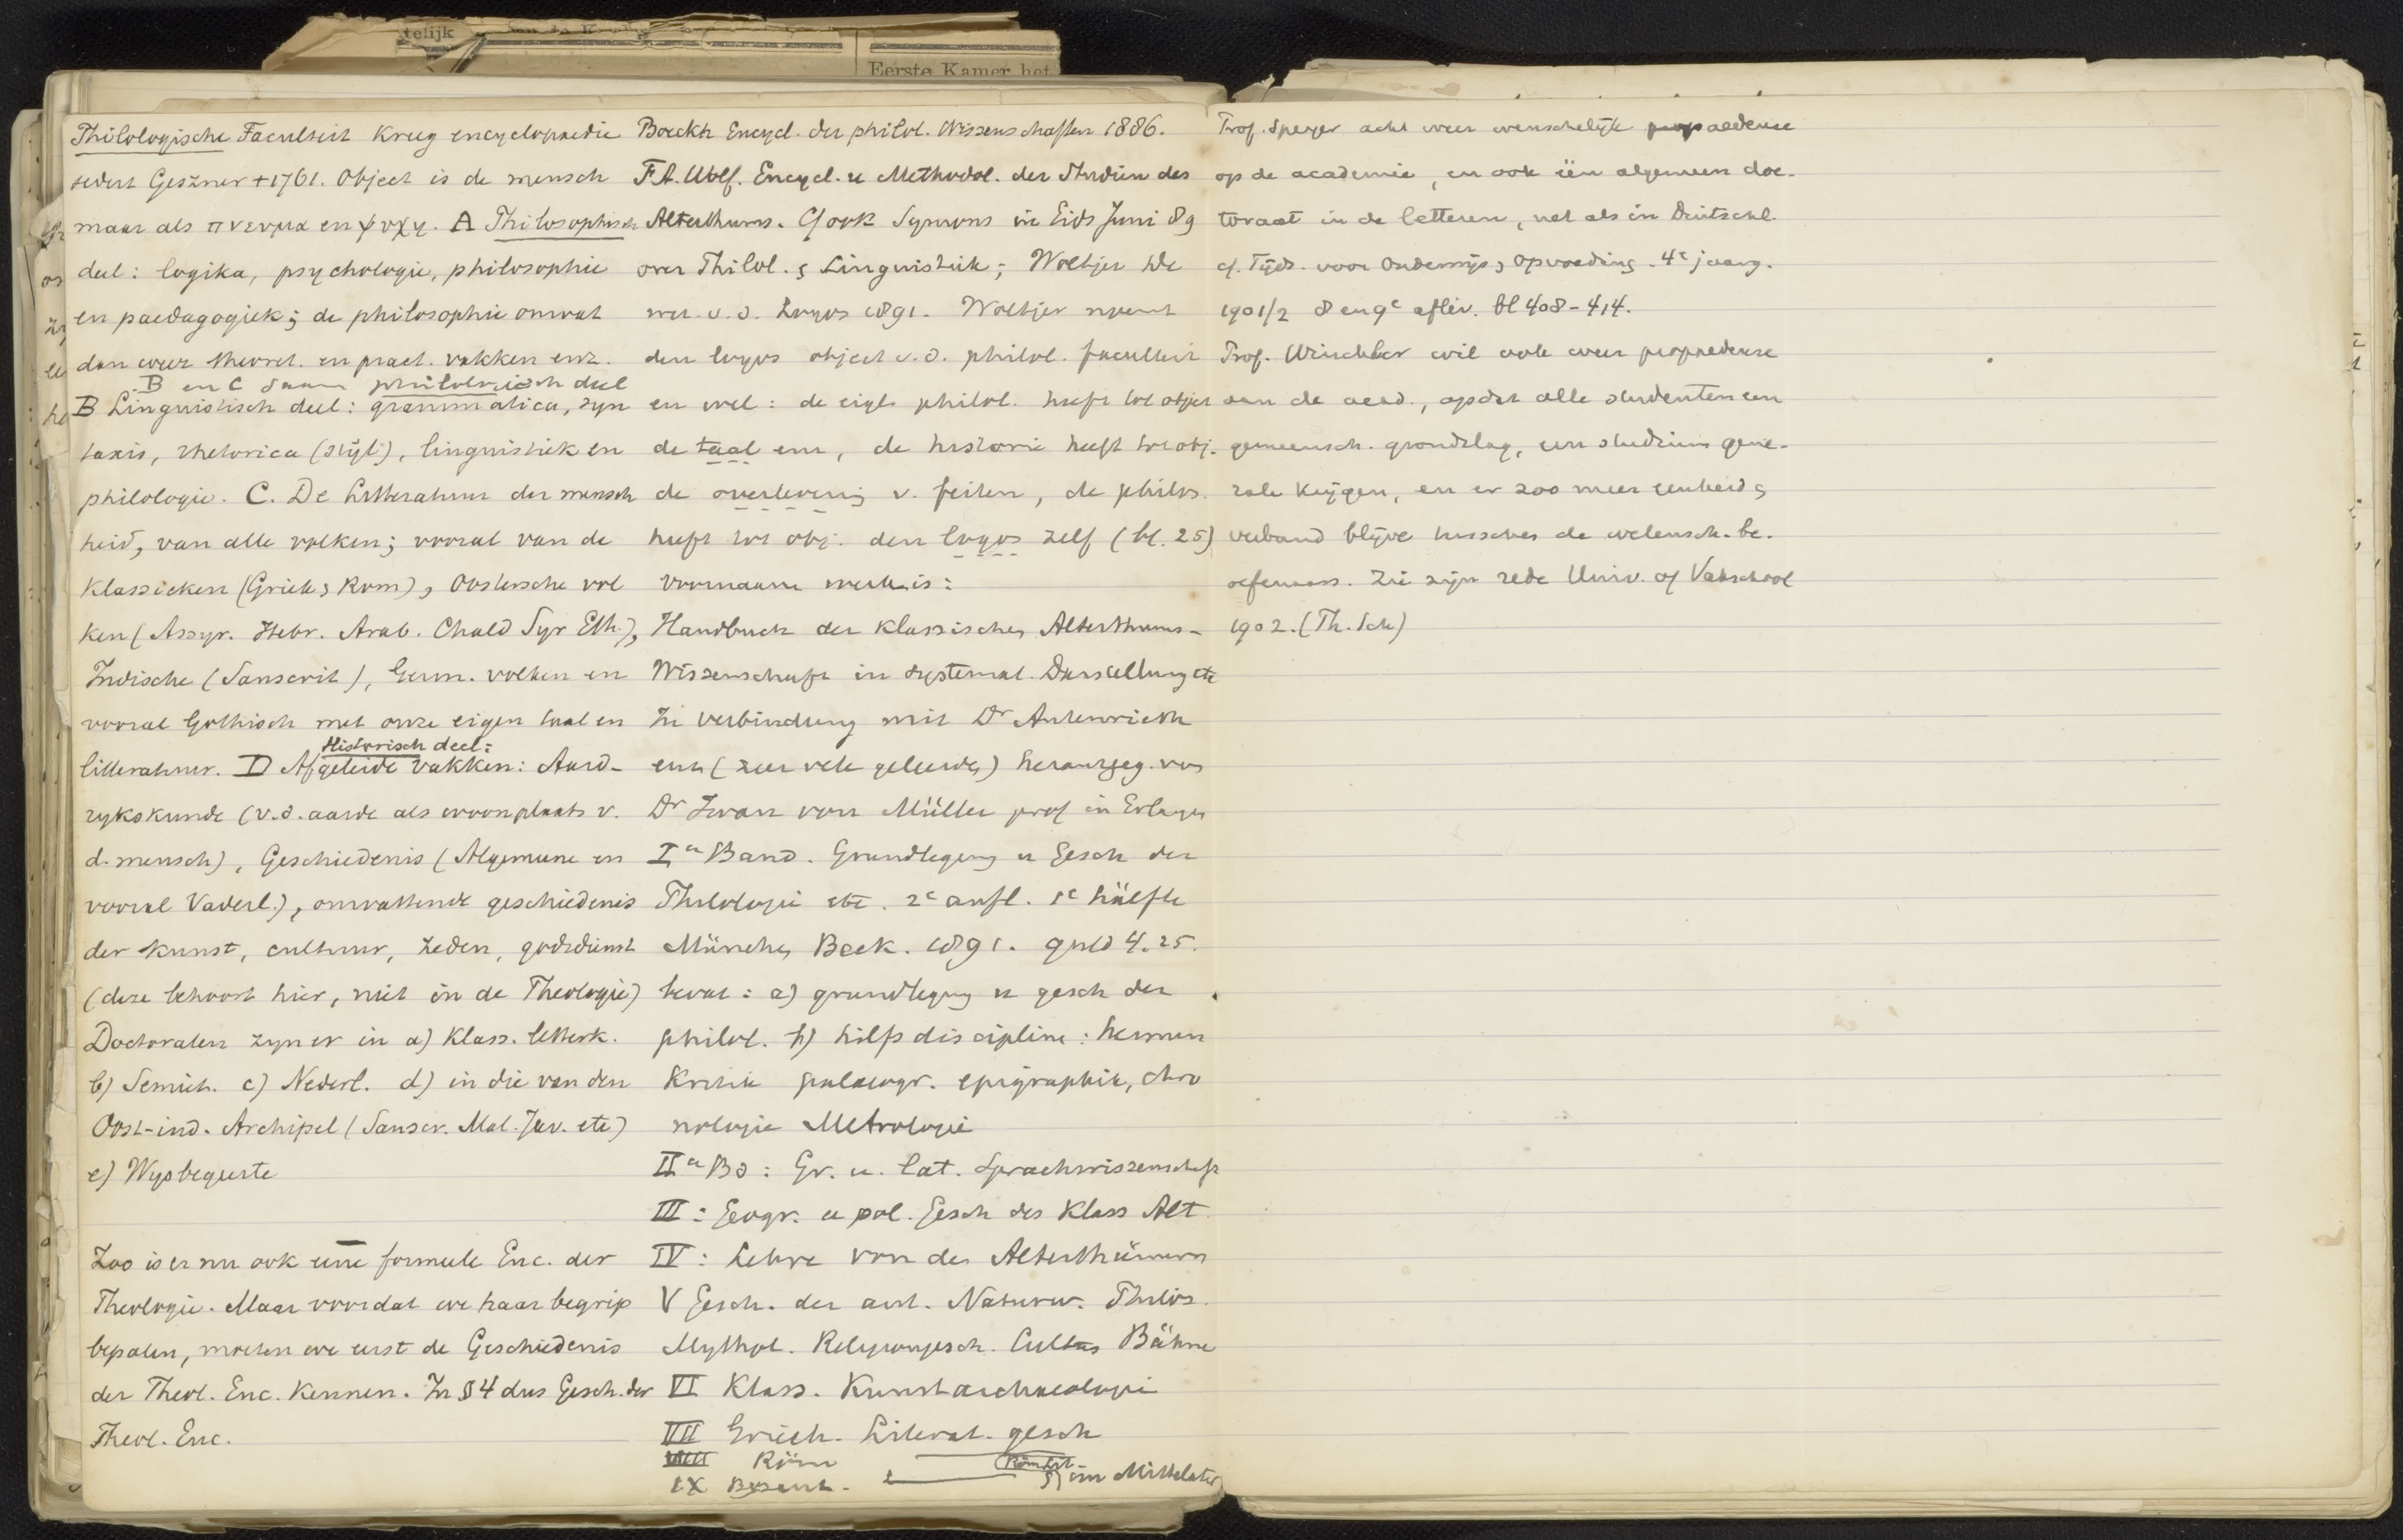 telijk
Eerste Kamer het
Philologische Faculteit Kreeg encyclopaedie
sedert Geszner † 1761. Object is de mensch
maar als πνευμα en ψυχη. A Philosophisch
deel: logika, psychologie, philosophie
en paedagogiek; de philosophie omvat
dan weer theoret. en pract. vakken enz.
B en C saam philologisch deel
B Linguistisch deel: grammatica, syn
taxis, rhetorica (stijl), linguistiek en
philologie. C. De Litteratuur der mensch
heid, van alle volken; vooral van de
Klassieken (Griek. & Rom), Oostersche vol
ken (Assyr. Hebr. Arab. Chald Syr Eth.),
Indische (Sanscrit), Germ. volken en
vooral Gothisch met onze eigen taal en
Historisch deel:
litteratuur. D Afgeleide vakken: Aard-
rykskunde (v.d. aarde als woonplaats v.
d. mensch), Geschiedenis (Algemeene en
vooral Vaderl.), omvattende geschiedenis
der kunst, cultuur, zeden, godsdienst
(deze behoort hier, niet in de Theologie)
Doctoraten zyn er in a) Klass. letterk.
b) Semit. c) Nederl. d) in die van den
Oost-ind. Archipel (Sanscr. Mal. Jav. etc)
e) Wysbegeerte
Zoo is er nu ook eene formeele Enc. der
Theologie. Maar voordat we haar begrip
bepalen, moeten we eerst de Geschiedenis
der Theol. Enc. Kennen. In § 4 dus Gesch. der
Theol. Enc.
Boeckh Encycl. der philol. Wissenschaften 1886.
F.A. Wolf. Encycl. u Methodol. der Studien des
Alterthums. Cf ook Symons in Gids Juni 89
over Philol. & Linguistiek; Woltjer De
wet. v. d. Logos 1891. Woltjer noemt
den logos object v. d. philol. faculteit
en wel: de eigl. philol. heeft tot object
de taal enz, de historie heeft tot obj.
de overlevering v. feiten, de philos.
heeft tot obj. den logos zelf (bl. 25)
Voornaam werk is:
Handbuch der klassischen Alterthums-
Wissenschaft in systemat. Darstellung etc
In verbindung mit Dr Autenrieth
enz (zeer vele geleerden) herausgeg. von
Dr Iwan von Müller prof in Erlangen
Ier Band. Grundlegung u Gesch der
Philologie etc. 2e aufl. 1e hälfte
München Beck. 1891. guld 4.25.
bevat: a) grundlegung u gesch der
philol. b) hilfsdiscipline: hermen
Kritik palaeogr. epigraphik, chro
nologie Metrologie
IIer Bd: Gr. u. lat. Sprachwissenschaft
III: Geogr. u pol. Gesch des Klass Alt.
IV: Lehre von den Alterthümern
V Gesch. der ant. Naturw. Philos.
Mythol. Religionsgesch. Cultus Bühne
VI Klass. Kunstarchaeologie
VII Griech. Literat. gesch
VIII Röm
IX Byzant. im Mittelalter
Prof. Speyer acht weer wenschelijk propaedeuse
op de academie, en ook één algemeen doc-
toraat in de letteren, net als in Duitschl.
cf. Tijds. voor Onderwijs & Opvoeding. 4e jaarg.
1901/2 8 en 9e aflev. bl 408-414.
Prof. Winckler wil ook weer propaedeuse
aan de acad., opdat alle studenten een
gemeensch. grondslag, een studium gene-
rale krijgen, en er zoo meer eenheid &
verband blijve tusschen de wetensch. be-
oefenaars. Zie zijn rede Univ. of Vakschool
1902. (Th. Sch)